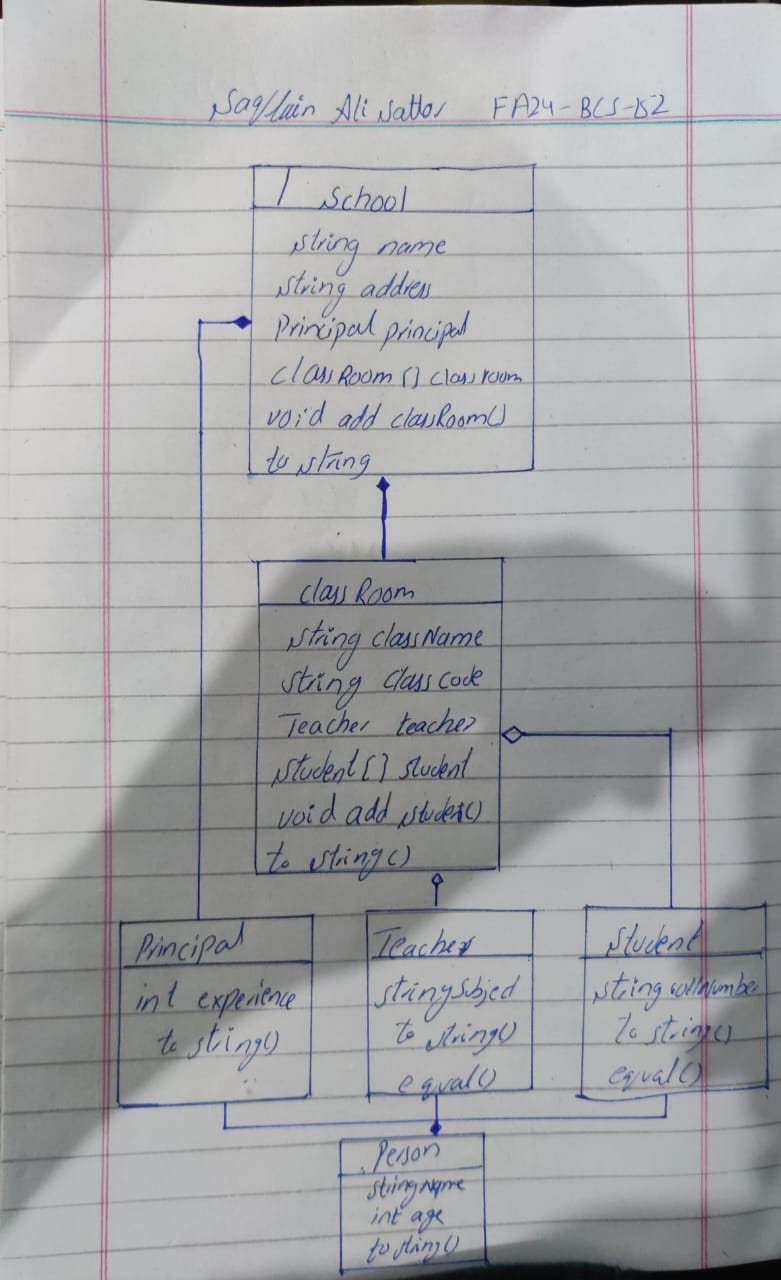 Saqlain Ali Sattar FA24-BCS-152
School
string name
string address
Principal principal
classRoom [] classroom
void add classRoom()
to string
classRoom
string className
string class code
Teacher teacher
student [] student
void add student()
to string()
Principal
int experience
to string()
Teacher
string subject
to string()
equal()
Student
string rollNumber
to string()
equal()
Person
string name
int age
to string()